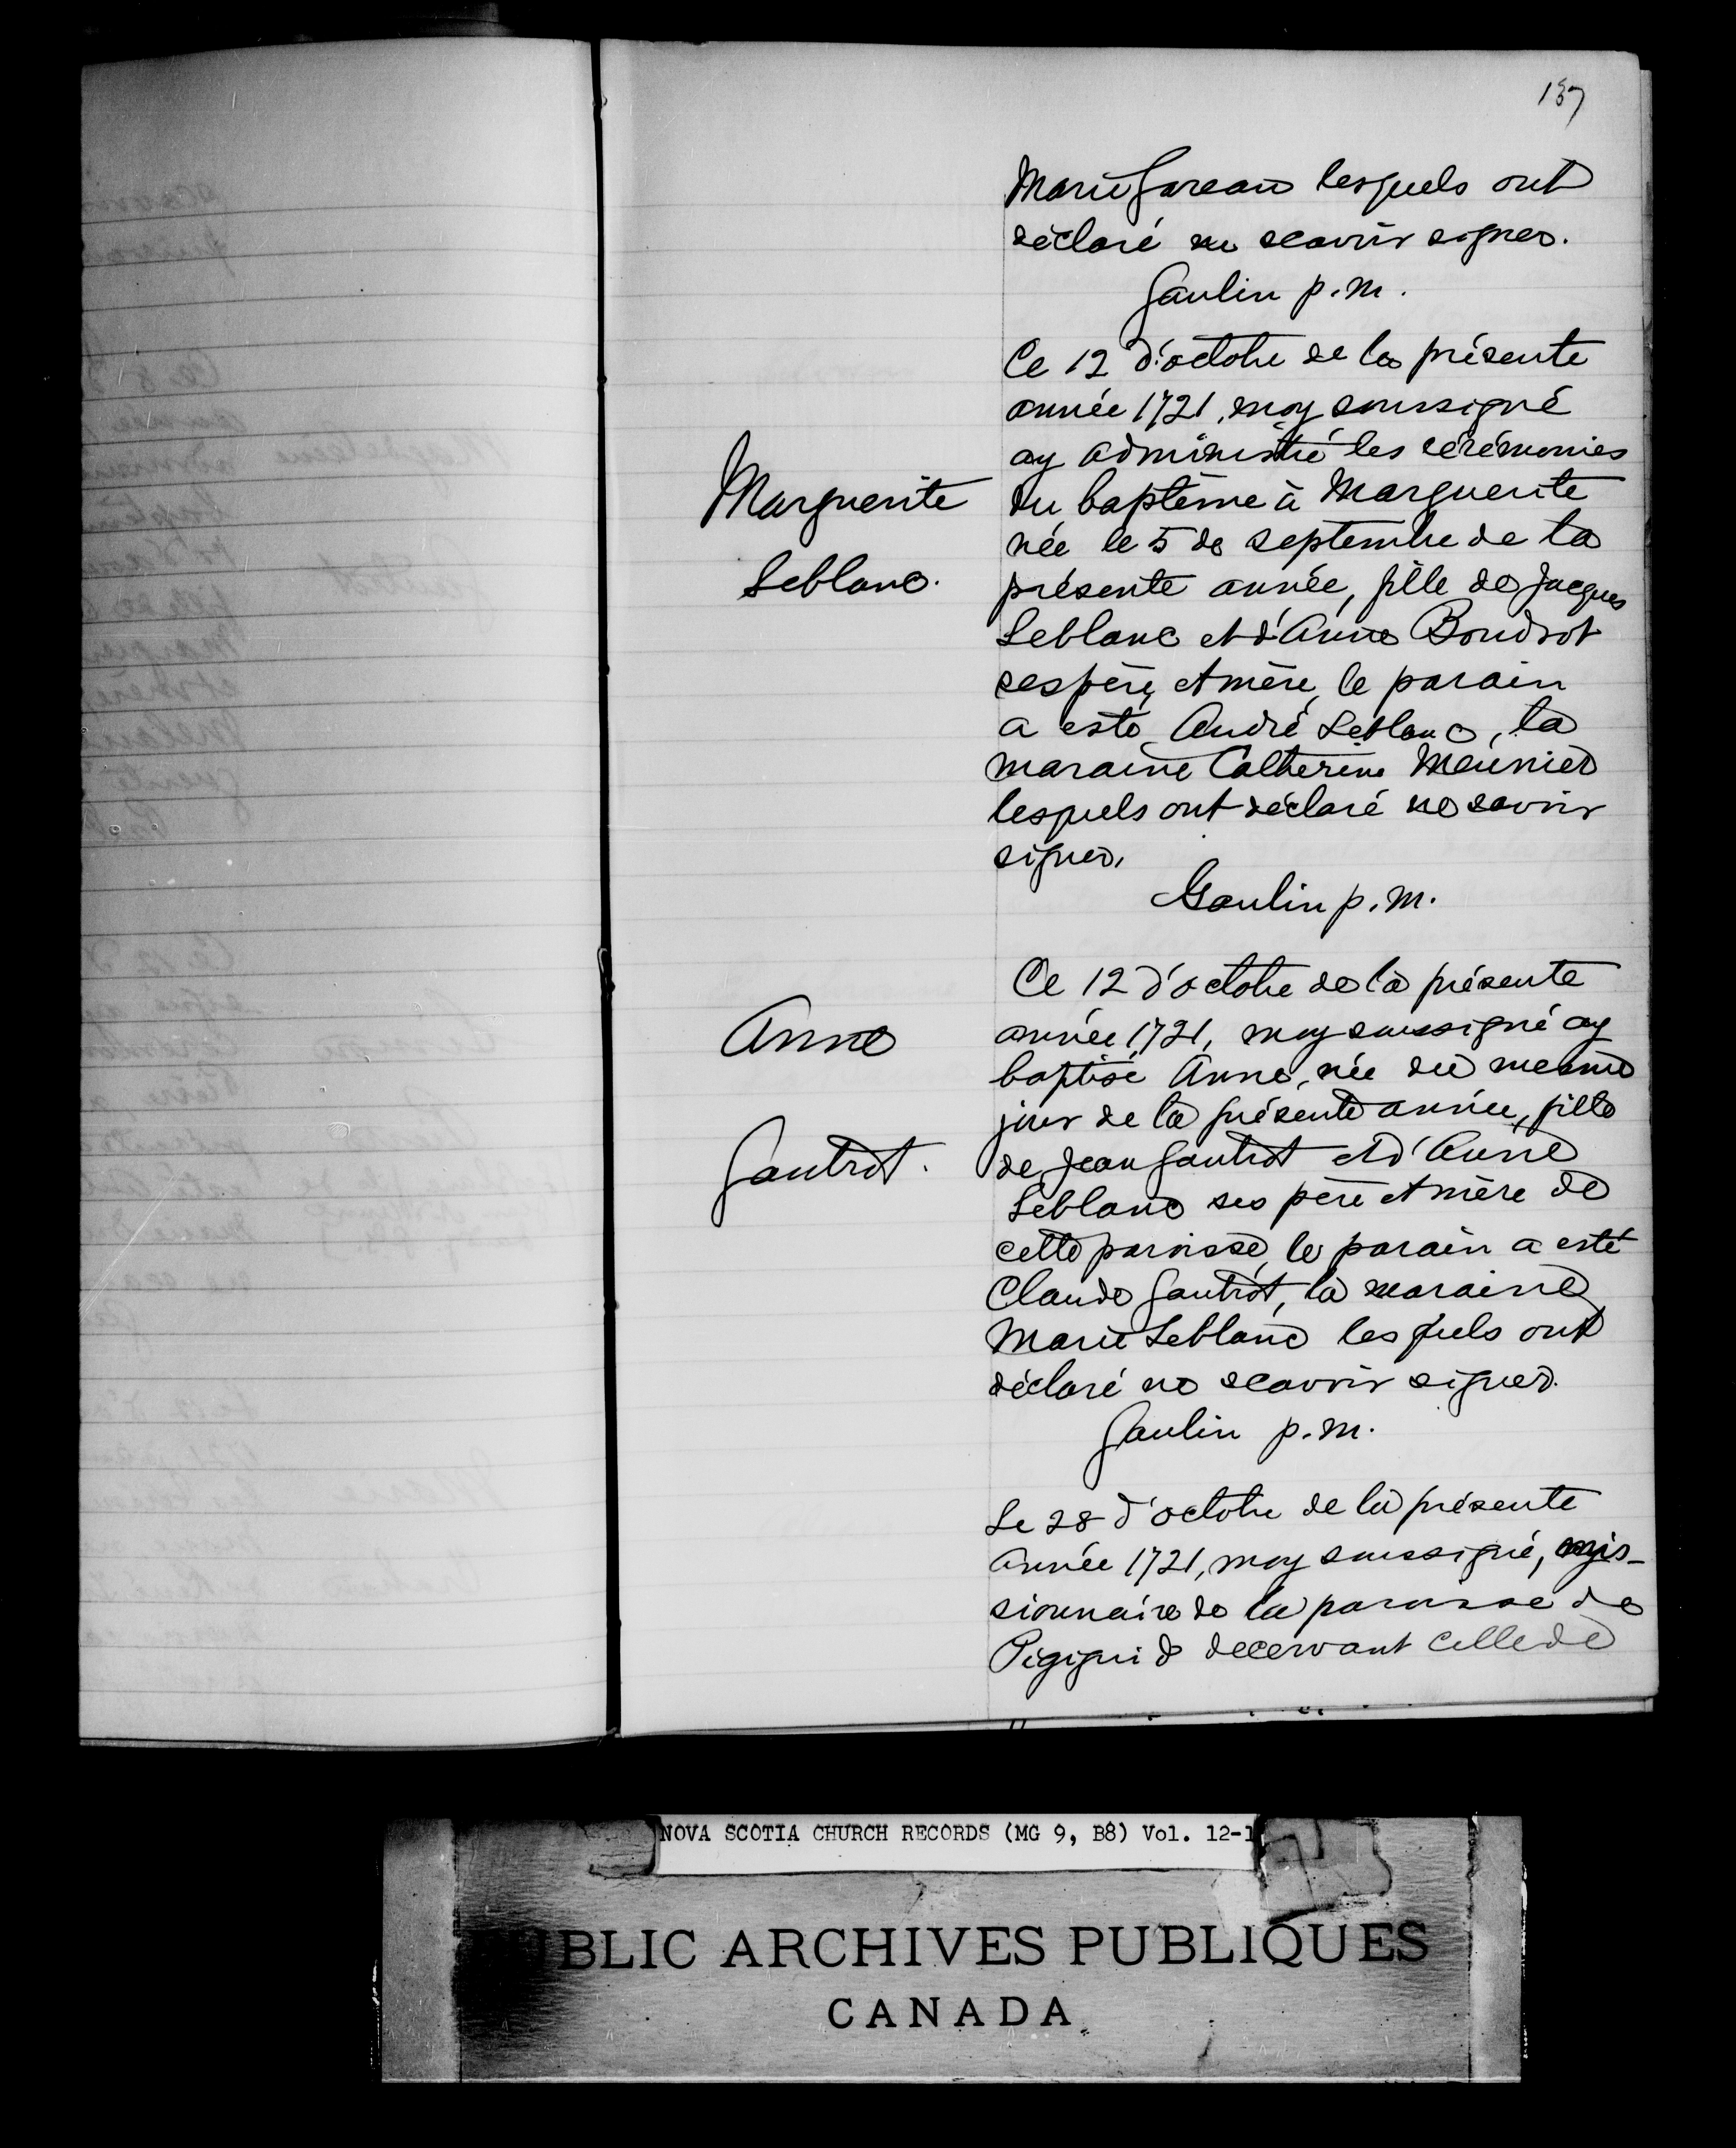 137
Marie Gareau lesquels ont
déclaré ne scavoir signer.
Gaulin p.m.
Ce 12 d'octobre de la présente
année 1721, moy soussigné
ay administré les cérémonies
Marguerite
Leblanc.
du baptême à Marguerite
née le 5 de septembre de la
présente année, fille de Jacques
Leblanc et d'Anne Boudrot
ses père et mère, le parain
a esté André Leblanc, la
maraine Catherine Meunier
lesquels ont déclaré ne savoir
signer.
Gaulin p.m.
Anne
Gautrot.
Ce 12 d'octobre de la présente
année 1721, moy soussigné ay
baptisé Anne, née du mesme
jour de la présente année, fille
de Jean Gautrot et d'Anne
Leblanc ses père et mère de
cette paroisse, le parain a esté
Claude Gautrot, la maraine
Marie Leblanc lesquels ont
déclaré ne scavoir signer.
Gaulin p.m.
Le 28 d'octobre de la présente
année 1721, moy soussigné, mis-
sionnaire de la paroisse de
Pigiguid decervant celle de
NOVA SCOTIA CHURCH RECORDS (MG 9, B8) Vol. 12-1
PUBLIC ARCHIVES PUBLIQUES
CANADA